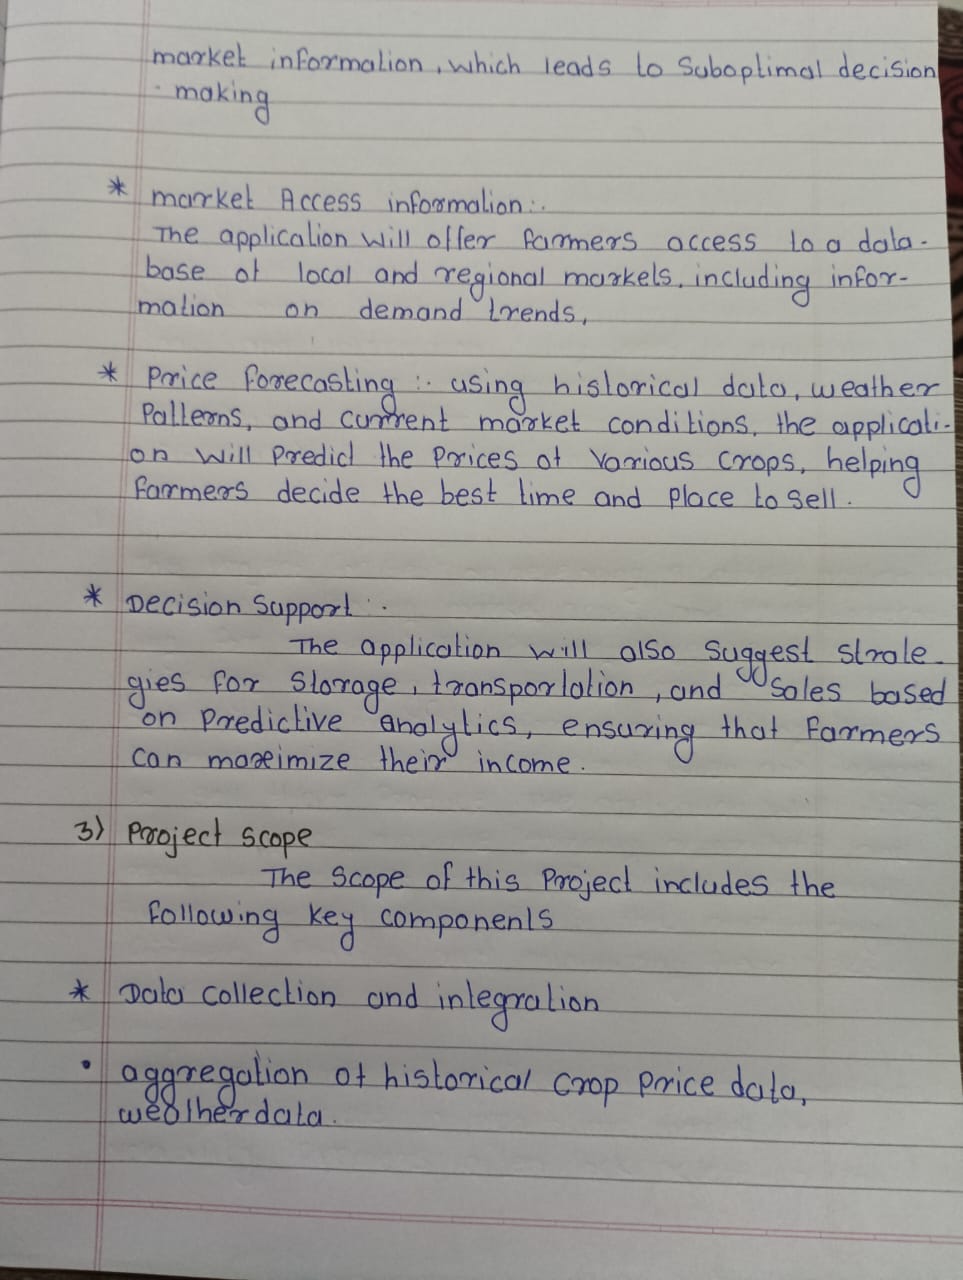 market information, which leads to Suboptimal decision
making
* market Access information:.
The application will offer farmers access to a data-
base of local and regional markets, including infor-
mation on demand trends,
* Price forecasting :. using historical data, weather
Patterns, and current market conditions, the applicati-
on will Predict the Prices of Various Crops, helping
farmers decide the best time and place to sell.
* Decision Support :.
The application will also suggest strate-
gies for storage, transportation, and sales based
on Predictive analytics, ensuring that Farmers
Can maxeimize their income.
3) Project scope
The Scope of this Project includes the
following key components
* Data collection and integration
• aggregation of historical crop Price data,
weather data.